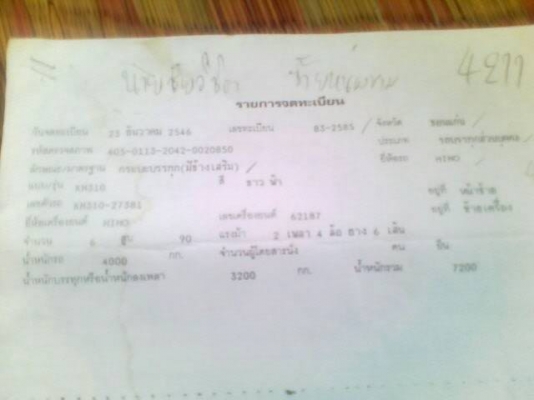 รายการจดทะเบียน
วันจดทะเบียน 23 ธันวาคม 2546 เลขทะเบียน 83-2585 จังหวัด ขอนแก่น
รหัสตรวจสภาพ 403-0113-2042-0020850 ประเภท รถบรรทุกส่วนบุคคล
ลักษณะ/มาตรฐาน กระบะบรรทุก(มีข้างเสริม) ยี่ห้อรถ HINO
แบบ/รุ่น KM310 สี ขาว ฟ้า
เลขตัวรถ KM310-27381 อยู่ที่ หน้าซ้าย
ยี่ห้อเครื่องยนต์ HINO เลขเครื่องยนต์ 62187 อยู่ที่ ซ้ายเครื่อง
จำนวน 6 สูบ 90 แรงม้า 2 เพลา 4 ล้อ ยาง 6 เส้น
น้ำหนักรถ 4000 กก. จำนวนผู้โดยสารนั่ง คน ยืน
น้ำหนักบรรทุกหรือน้ำหนักลงเพลา 3200 กก. น้ำหนักรวม 7200